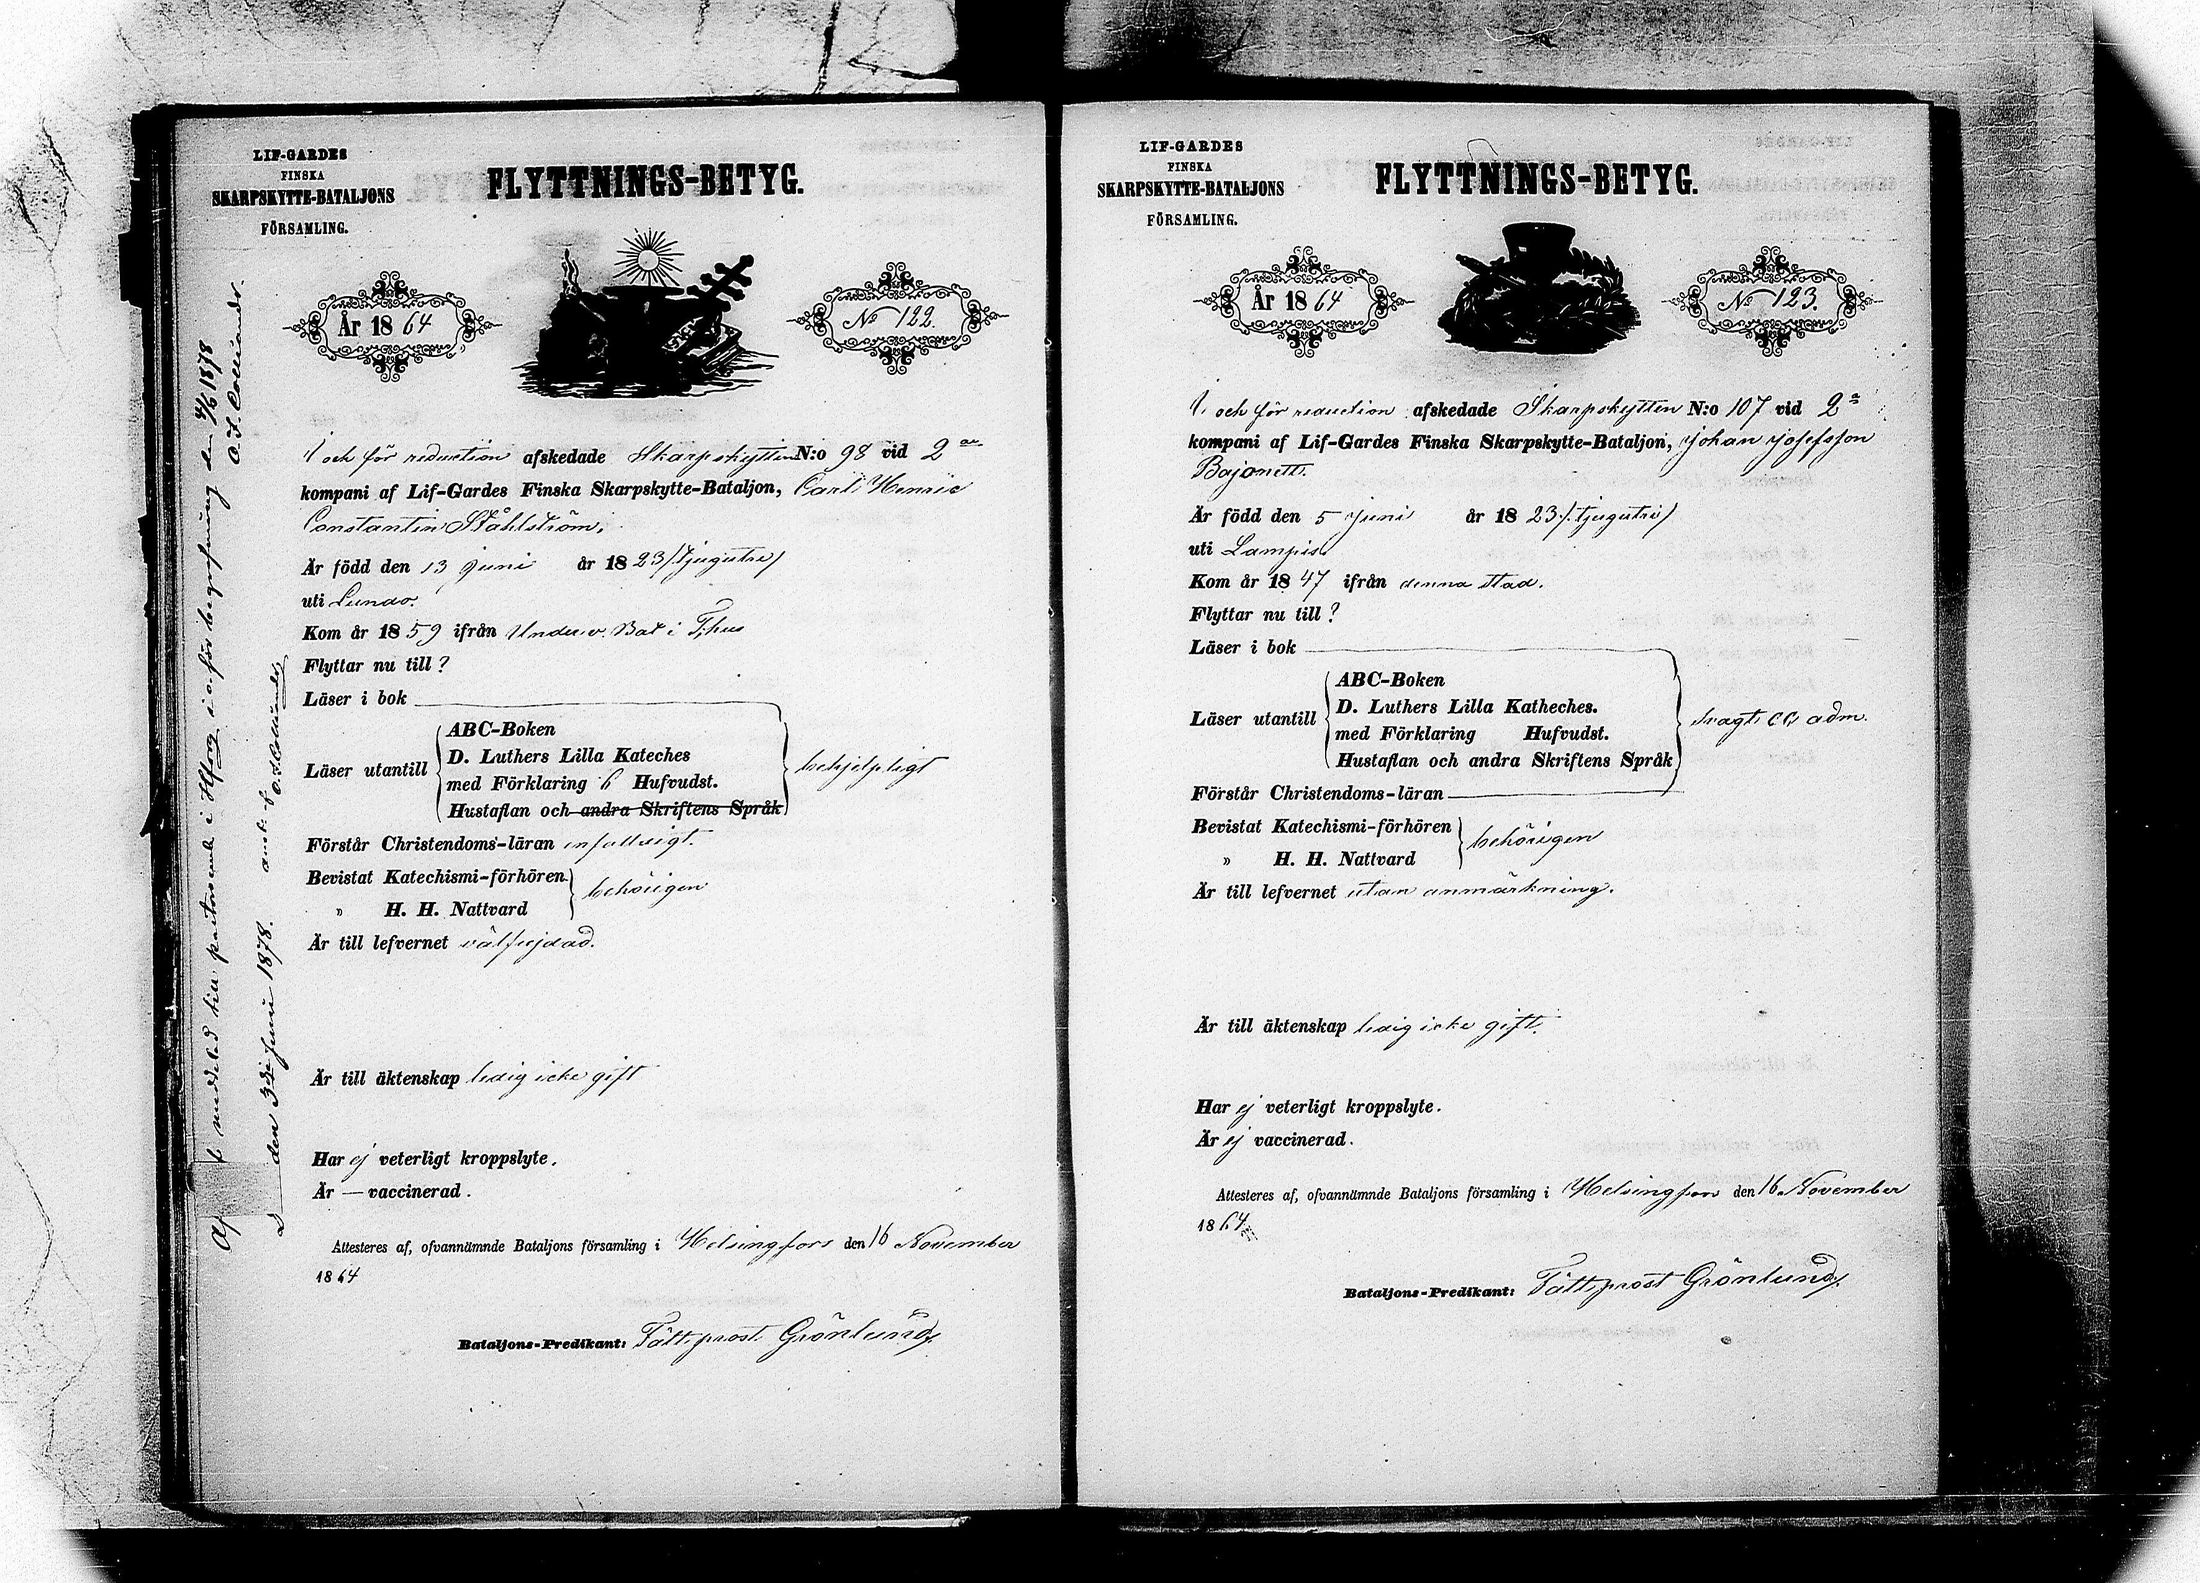 LIF-GARDES
FINSKA
SKARPSKYTTE-BATALJONS
FÖRSAMLING.
FLYTTNINGS-BETYG.
År 1864
No 122.
I och för reduction afskedade Skarpskytten N:o 98 vid 2
kompani af Lif-Gardes Finska Skarpskytte-Bataljon, Carl Henric
Constantin Ståhlström,
Är född den 13 Juni år 1823 /:tjugutre/
uti Lundo.
Kom år 1859 ifrån Underv. Bat i T:hus
Flyttar nu till?
Läser i bok
Läser utantill
ABC-Boken
D. Luthers Lilla Kateches
med Förklaring 6 Hufvudst.
Hustaflan och andra Skriftens Språk
behjelpligt
Förstår Christendoms-läran enfalldigt.
Bevistat Katechismi-förhören
" H. H. Nattvard
behörigen
Är till lefvernet välfrejdad.
Är till äktenskap ledig icke gift
Har ej veterligt kroppslyte.
Är — vaccinerad.
Attesteres af, ofvannämnde Bataljons församling i Helsingfors den 16 November
1864
Bataljons-Predikant: Fältprost Grönlund
meddelad till i Hfors för begrafning den 4/6 1878
den 3dje Juni 1878.
LIF-GARDES
FINSKA
SKARPSKYTTE-BATALJONS
FÖRSAMLING.
FLYTTNINGS-BETYG.
År 1864
No 123.
I och för reduction afskedade Skarpskytten N:o 107 vid 2a
kompani af Lif-Gardes Finska Skarpskytte-Bataljon, Johan Josefsson
Bajonett.
Är född den 5 Juni år 1823 /:tjugutre/
uti Lampis.
Kom år 1847 ifrån denna stad.
Flyttar nu till?
Läser i bok
Läser utantill
ABC-Boken
D. Luthers Lilla Katheches.
med Förklaring Hufvudst.
Hustaflan och andra Skriftens Språk
svagt adm.
Förstår Christendoms-läran
Bevistat Katechismi-förhören
" H. H. Nattvard
behörigen
Är till lefvernet utan anmärkning.
Är till äktenskap ledig icke gift.
Har ej veterligt kroppslyte.
Är ej vaccinerad.
Attesteres af, ofvannämnde Bataljons församling i Helsingfors den 16 November
1864
Bataljons-Predikant: Fältprost Grönlund